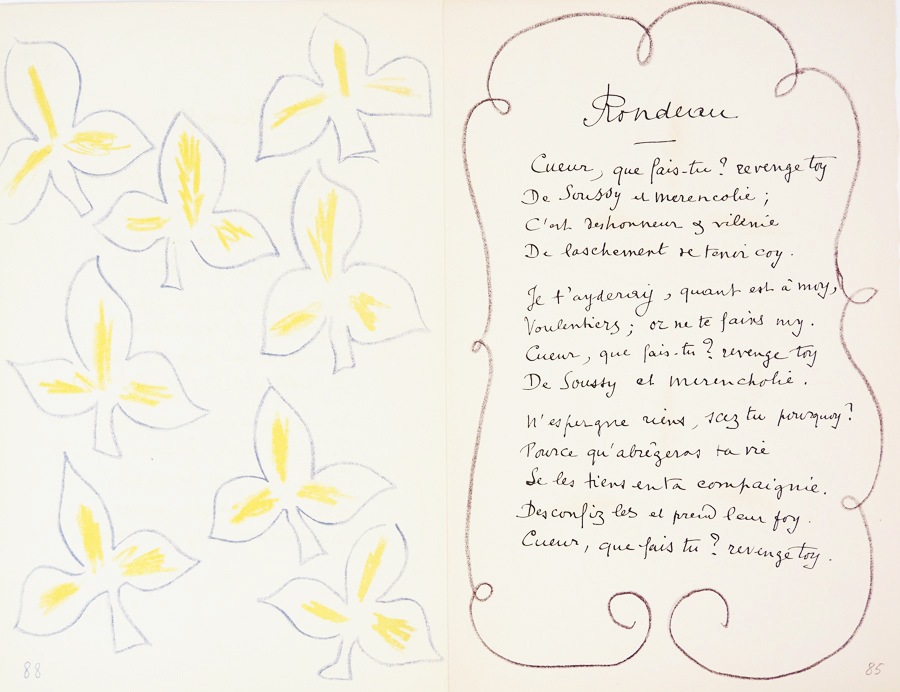 Rondeau
Cueur, que fais-tu? revenge toy
De Soussy et merencolie;
C'est deshonneur & vilenie
De laschement se tenir coy.
Je t'ayderay, quant est à moy,
Voulentiers; or ne te fains my.
Cueur, que fais-tu? revenge toy
De Soussy et merencholie.
N'espergne riens, scez tu pourquoy?
Pource qu'abrégeras ta vie
Se les tiens en ta compaignie.
Desconfiz les et prend leur foy.
Cueur, que fais tu? revenge toy.
88
85